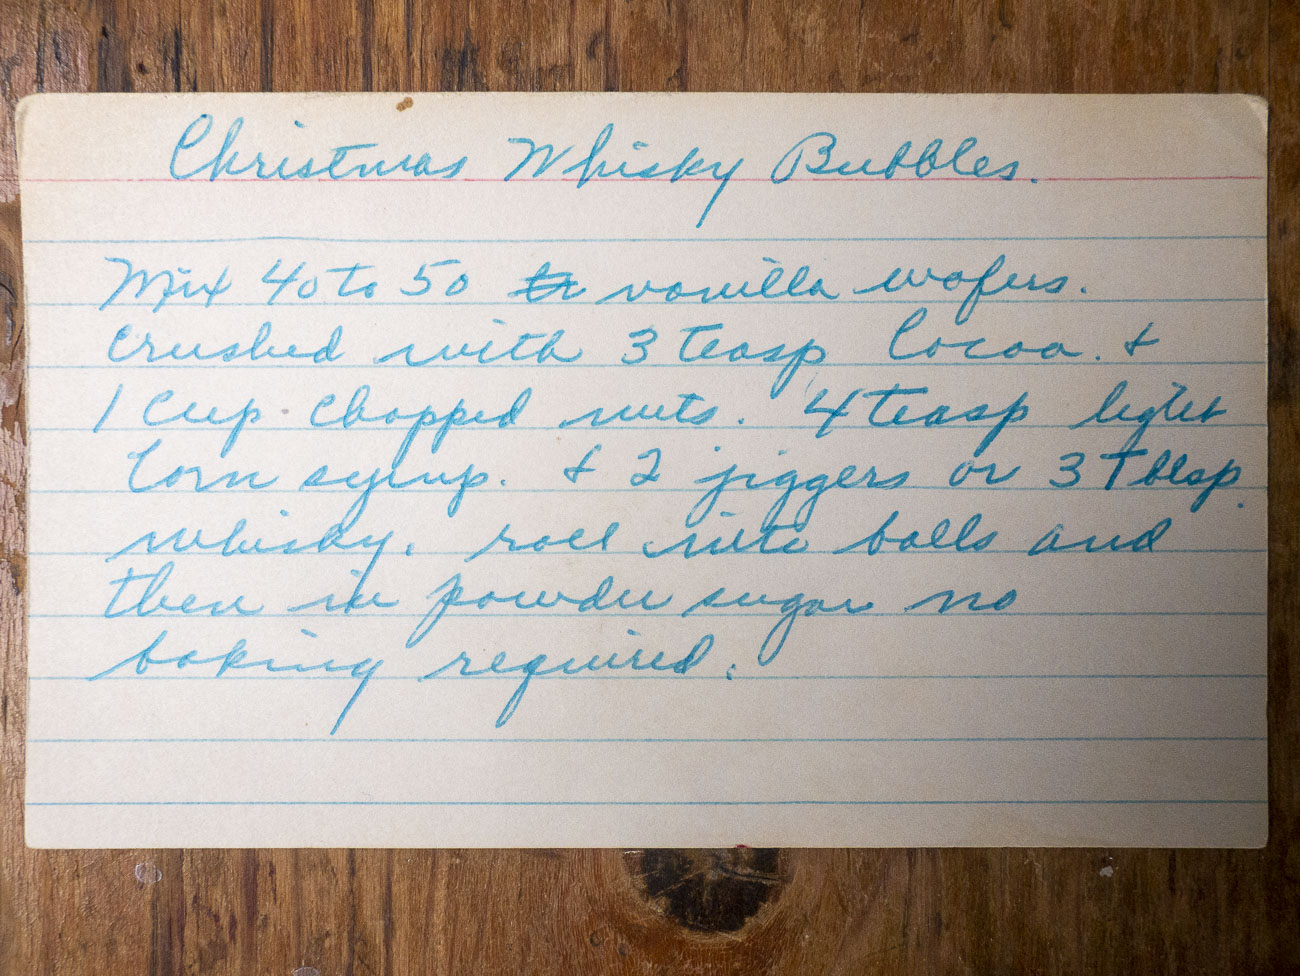 Christmas Whisky Bubbles.
Mix 40 to 50 vanilla wafers.
crushed with 3 teasp Cocoa. &
1 cup chopped nuts. 4 teasp light
Corn syrup. & 2 jiggers or 3 Tblsp.
whisky. roll into balls and
then in powder sugar no
baking required.